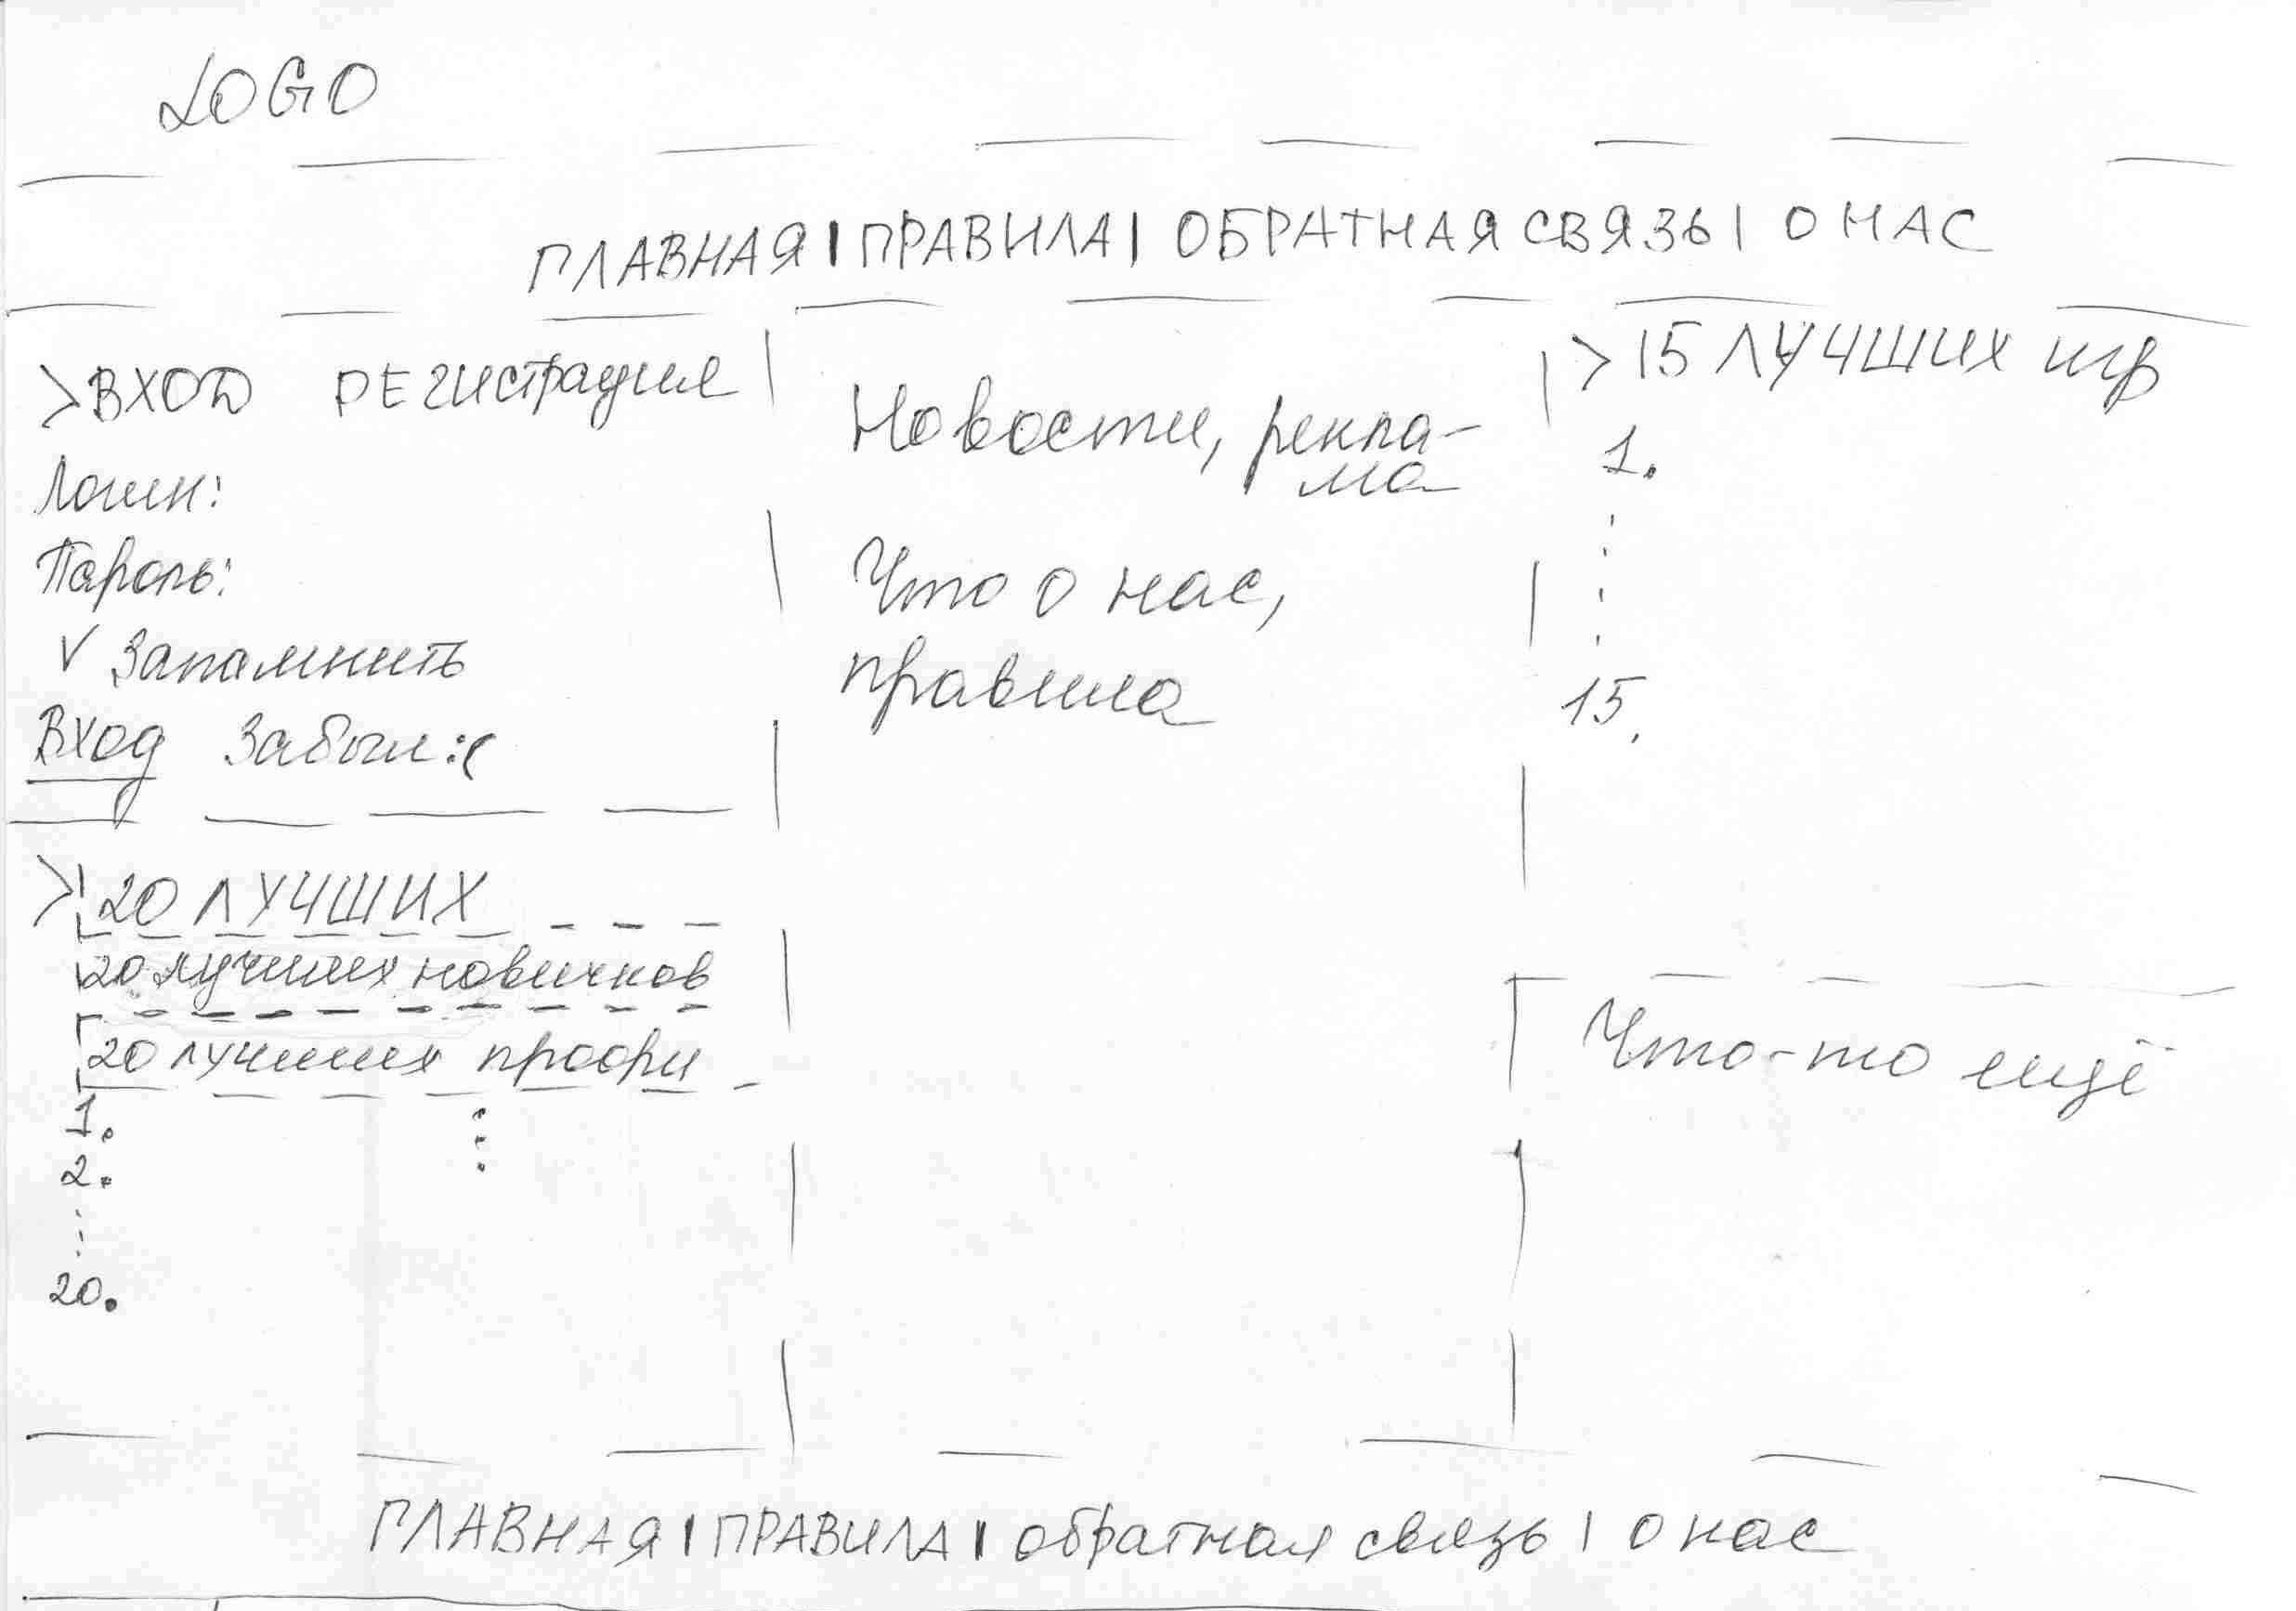 LOGO
ГЛАВНАЯ | ПРАВИЛА | ОБРАТНАЯ СВЯЗЬ | О НАС
>ВХОД РЕГИСТРАЦИЯ
Логин:
Пароль:
V Запомнить
Вход Забыл :(
> 20 ЛУЧШИХ
20 лучших новичков
20 лучших профи
1.
2.
20.
Новости, рекла-
ма
Что о нас,
правила
> 15 ЛУЧШИХ игр
1.
15.
Что-то ещё
ГЛАВНАЯ | ПРАВИЛА | обратная связь | о нас